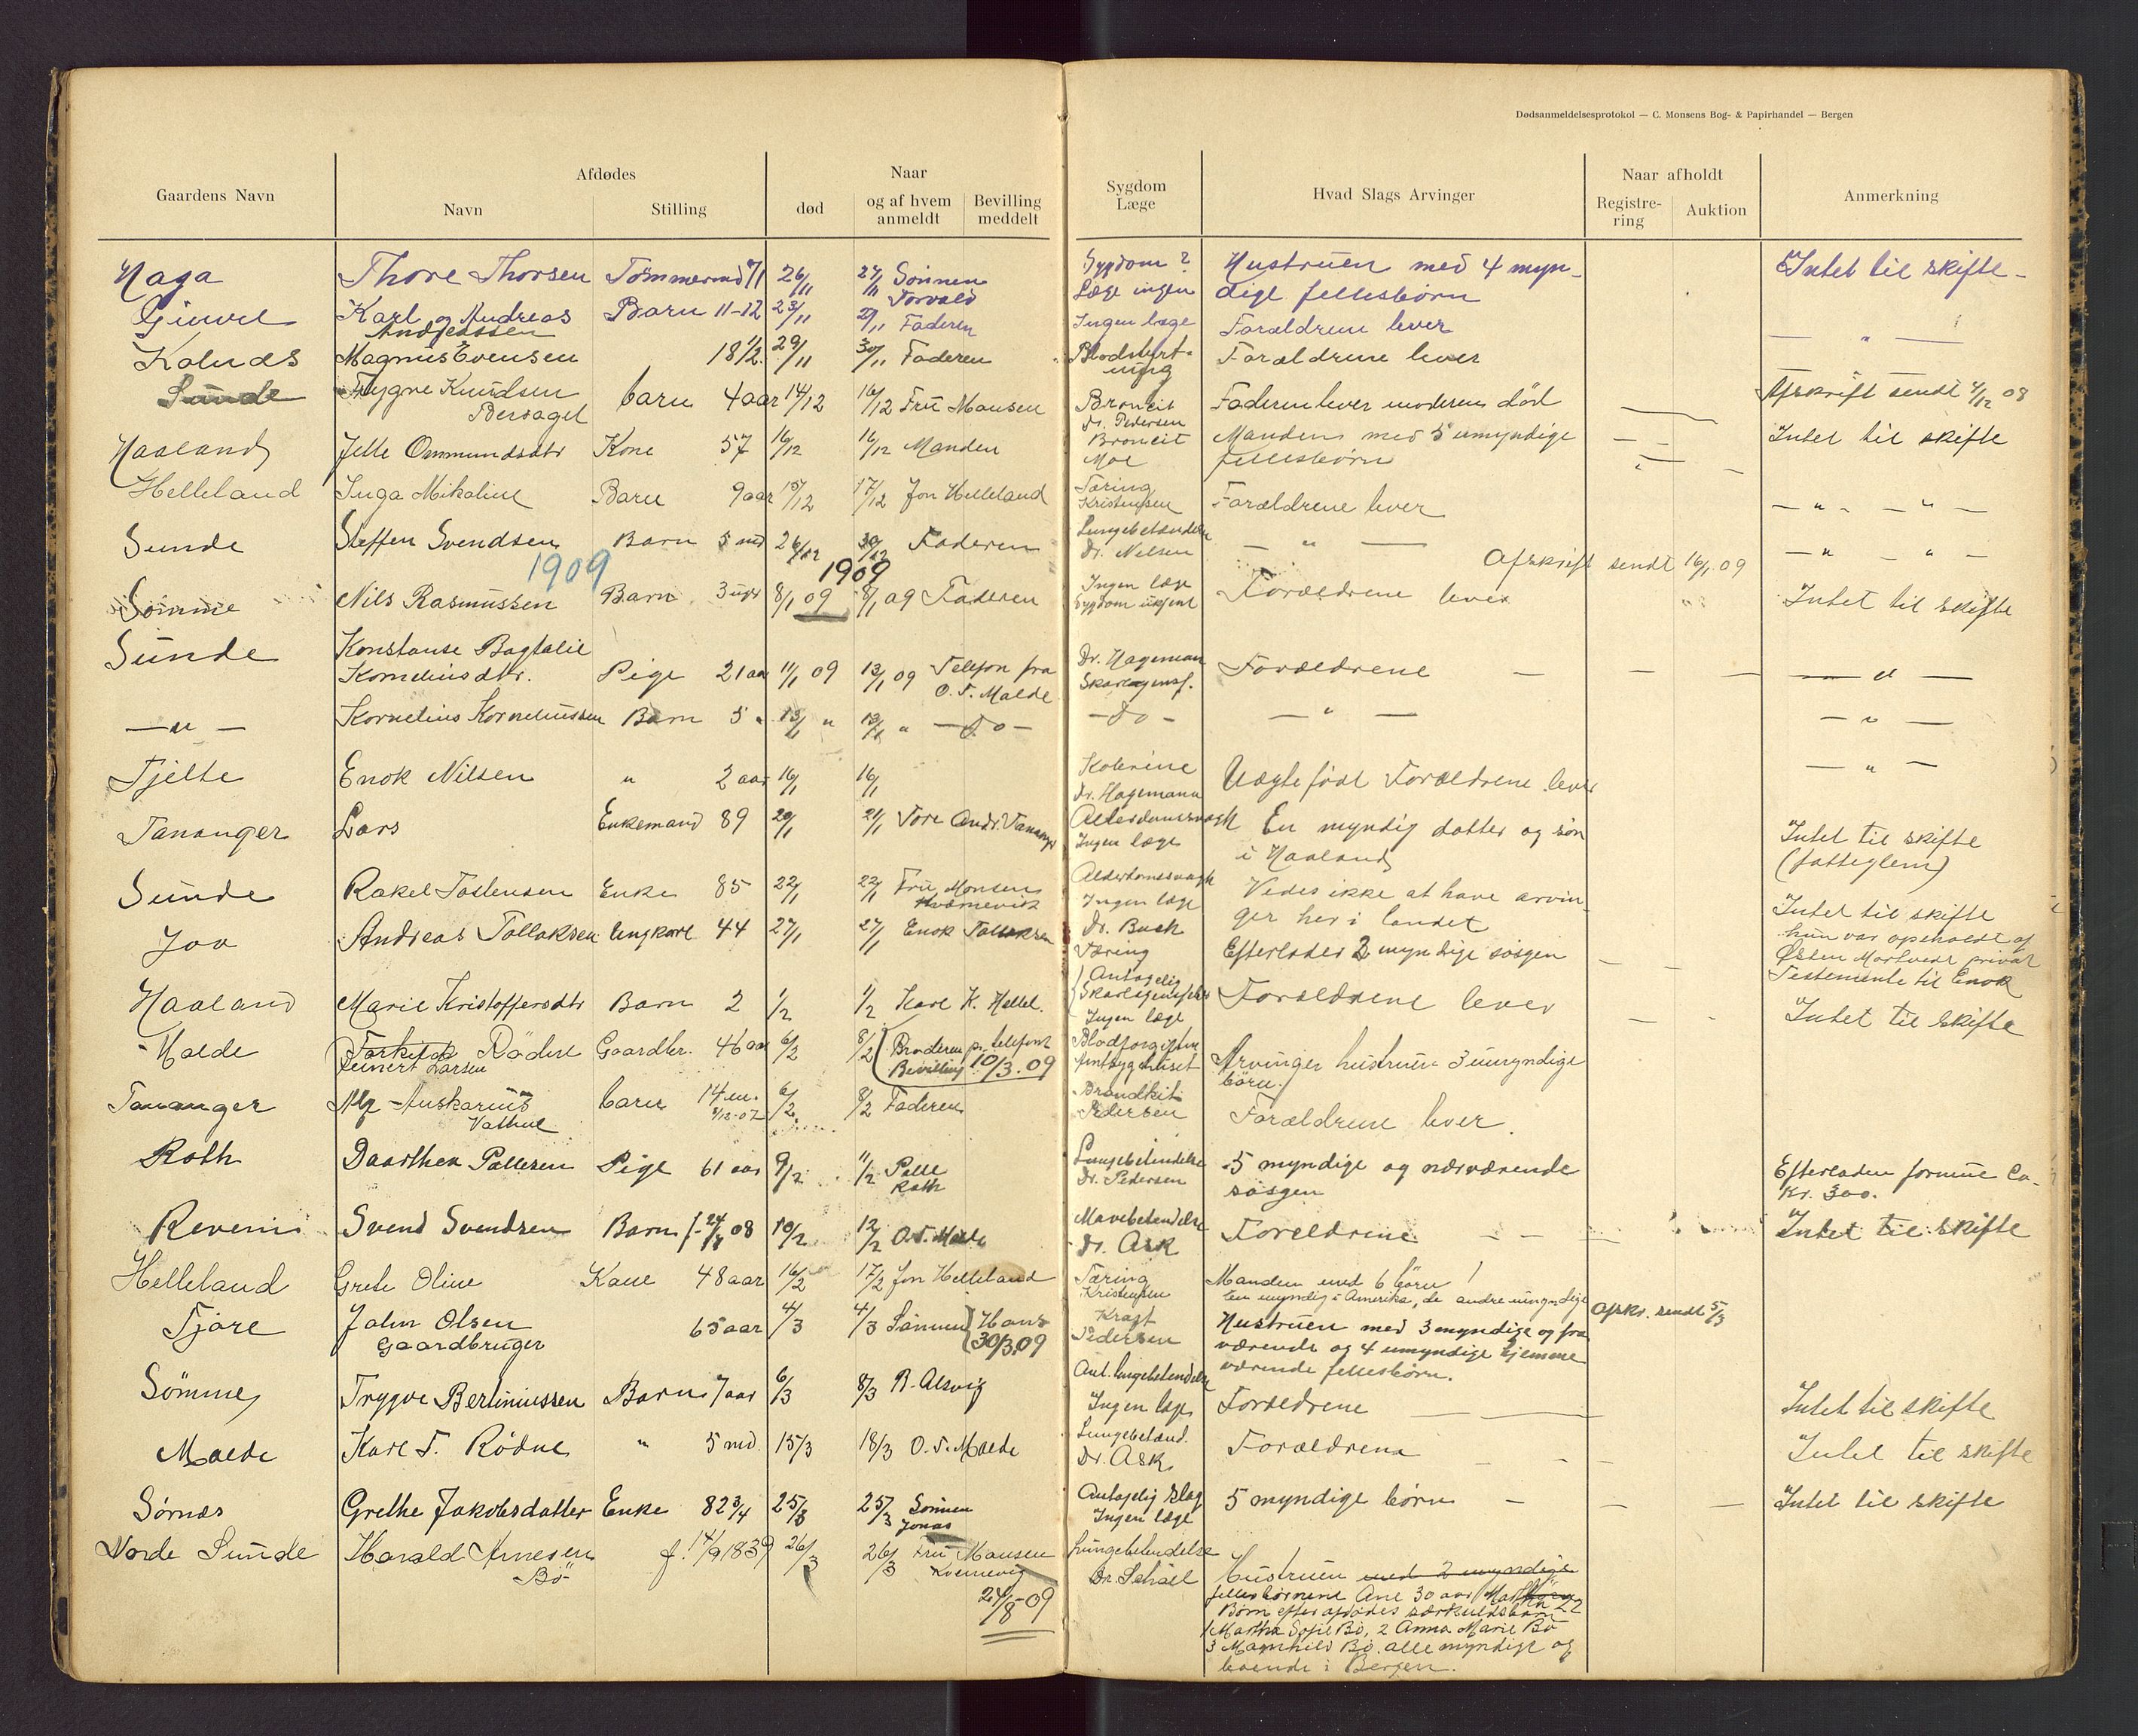 Dødsanmeldelsesprotokol — C. Monsens Bog- & Papirhandel — Bergen
Gaardens Navn
Afdødes
Navn
Stilling
Naar
død
og af hvem anmeldt
Bevilling meddelt
Sygdom Læge
Hvad Slags Arvinger
Naar afholdt
Registrering
Auktion
Anmerkning
Haga Thore Thorsen Tömmermd 71 26/11 27/11 Sönnen Torvald Sygdom ? Læge ingen Hustruen med 4 myndige fellesbörn Intet til skifte
Karl og Andreas Andreassen Barn 11-12 23/11 29/11 Faderen Ingen læge Forældrene lever — " —
Kolnæs Magnus Evensen 18 1/2 29/11 30/11 Faderen Blodstyrtning Forældrene lever
Sunde Trygve Knudsen barn 4 aar 14/12 16/12 Fru Monsen Broncit Dr. Pedersen Faderen lever moderen död Afskrift sendt 4/12 08
Haaland Omundsdtr Kone 57 16/12 16/12 Manden Broncit Moe Manden med 5 umyndige fellesbörn Intet til skifte
Helleland Inga Mikaline Barn 9 aar 15/12 17/12 Jon Helleland Tæring Kristensen Forældrene lever — " — " —
Sunde Steffen Svendsen Barn 5 md 26/12 30/12 Faderen Lungebetændelse Dr. Nilsen — " — — " — " —
1909
1909
Afskrift sendt 16/1 09
Sömme Nils Rasmussen Barn 3 uger 8/1 09 8/1 09 Faderen Ingen læge Sygdom ukjent Forældrene lever Intet til skifte
Sunde Konstanse
Korneliusdtr. Pige 21 aar 11/1 09 13/1 09 Telefon fra O. T. Malde Dr. Hageman Forældrene — " —
— " — Kornelius Korneliussen Barn 5 " 13/1 " 13/1 " — Do — — Do — — " — — " —
Tjelte Enok Nilsen " 2 aar 16/1 16/1 Dr. Hagemann Uægte föd Forældrene lever — " —
Tananger Lars Enkemand 89 20/1 21/1 Tore Andr. Tananger Alderdomssvagh Ingen læge En myndig datter og sön i Haaland Intet til skifte (fatteglem)
Sunde Rakel Tostensen Enke 85 22/1 22/1 Fru Monsen Alderdomssvagh Ingen læge Vides ikke at have arvinger her i landet Intet til skifte hun var opholdt af
Joa Andreas Tollaksen Ungkarl 44 27/1 27/1 Enok Tollaksen Dr. Buch Tæring Efterlader 2 myndige sösgen Testemente til Enok
Haaland Marie Kristoffersdtr Barn 2 1/2 1/2 Karl K. Hellel. Antagelig Ingen læge Forældrene lever Intet til skifte
Malde Rödne Reinert Larsen Gaardbr. 46 aar 6/2 8/2 Broderen pr. telefon Bevilling 10/3.09 Blodforgiftn Arvinger hustruen 3 umyndige börn.
Tananger Barn 14 m. 6/2 8/2 Faderen Pedersen Forældrene lever.
Roth Daarthea Pallesen Pige 61 aar 9/2 11/2 Palle Roth Lungebetendelse Dr. Pedersen 5 myndige og nærværende sösgen Efterladen formue ca. Kr. 300.
Svend Svendsen Barn 08 10/2 12/2 O. T. Malde Mavebetendelse Dr. Ask Foreldrene Intet til skifte
Helleland Grete Oline Kone 48 aar 16/2 17/2 Jon Helleland Tæring Kristensen Manden med 6 börn en myndig i Amerika, de andre umyndige
Tjore John Olsen Gaardbruger 65 aar 4/3 4/3 Sönnen Hans 30/3.09 Kræft Pedersen Hustruen med 3 myndige og fraværende og 4 umyndige hjemmeværende fellesbörn. Afskr. sendt 5/3
Sömme Trygve Bertiniussen Barn 7 aar 6/3 8/3 R. Alsvig Ant. lungebetendelse Ingen læge Foreldrene Intet til skifte
Malde Karl T. Rödne " 5 md. 15/3 18/3 O. T. Malde Lungebetænd. Dr. Ask Forældrene Intet til skifte
Sörnes Grethe Jakobsdatter Enke 82 3/4 25/3 25/3 Sönnen Jonas Antagelig slag Ingen læge 5 myndige börn Intet til skifte
Nordre Sunde Harald Arnesen Bö f. 14/9 1839 26/3 26/3 Fru Monsen Kvernevig Lungebetendelse Hustruen med 2 myndige
24/8-09
fellesbörnene Ane 30 aar
Börn efter afdödes særkuldsbarn
1 Martha Sofie Bö, 2 Anna Marie Bö
3 Magnhild Bö. alle myndige og
boende i Bergen.